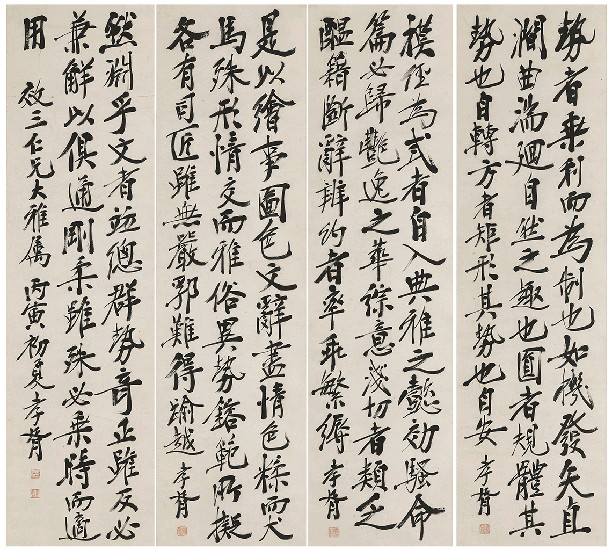 勢者乘利而為制也如機發矢直
澗曲湍廻自然之趣也圓者規體其
勢也自轉方者矩形其勢也自安 孝胥
模經為式者自入典雅之懿効騷命
篇必歸艷逸之華綜意淺切者類乏
醞籍斷辭辨約者率乖繁縟 孝胥
是以繪事圖色文辭盡情色糅而犬
馬殊形情交而雅俗異勢鎔範所擬
各有司匠雖無嚴郛難得踰越 孝胥
然淵乎文者並總群勢奇正雖反必
兼解以俱通剛柔雖殊必乘時而適
用 效三仁兄大雅属 丙寅初夏 孝胥